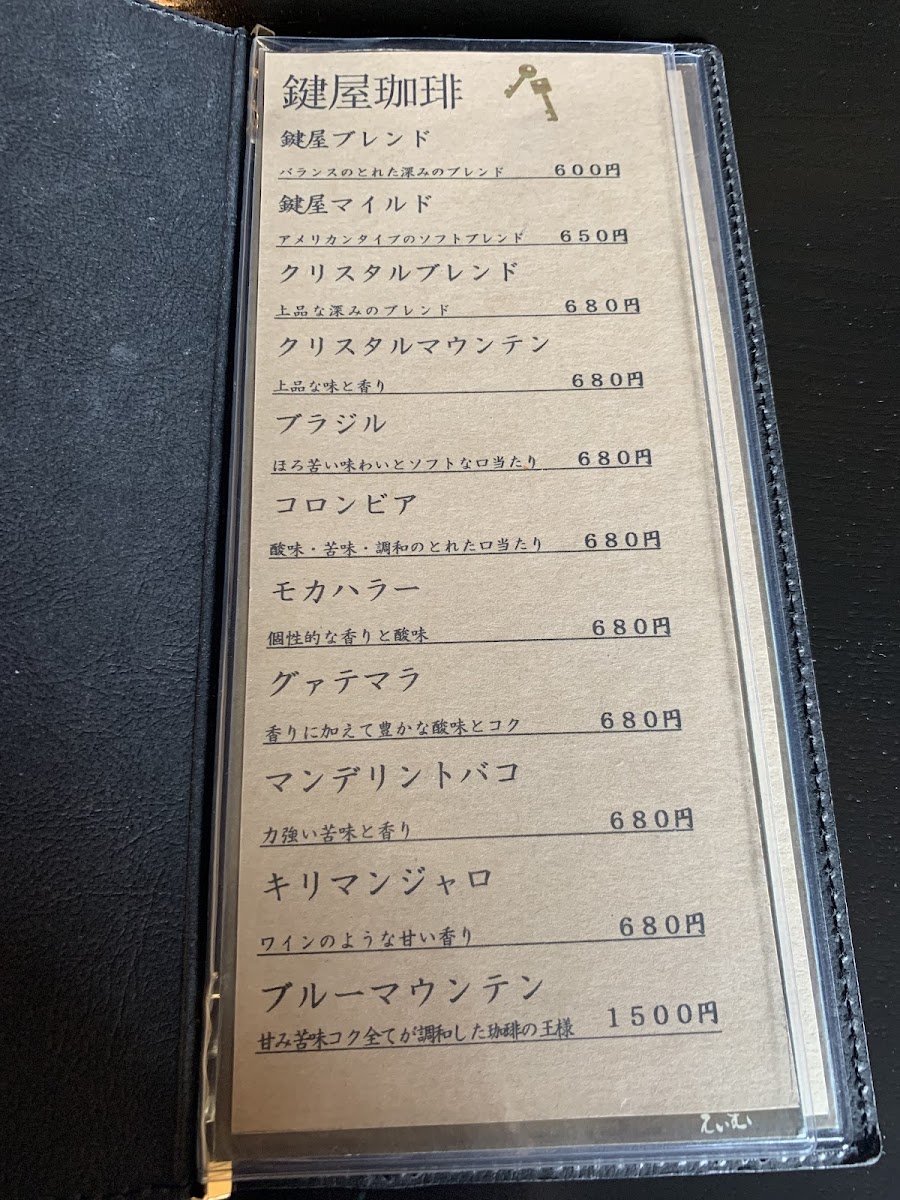 鍵屋珈琲
鍵屋ブレンド
バランスのとれた深みのブレンド 600円
鍵屋マイルド
アメリカンタイプのソフトブレンド 650円
クリスタルブレンド
上品な深みのブレンド 680円
クリスタルマウンテン
上品な味と香り 680円
ブラジル
ほろ苦い味わいとソフトな口当たり 680円
コロンビア
酸味・苦味・調和のとれた口当たり 680円
モカハラー
個性的な香りと酸味 680円
グァテマラ
香りに加えて豊かな酸味とコク 680円
マンデリントバコ
力強い苦味と香り 680円
キリマンジャロ
ワインのような甘い香り 680円
ブルーマウンテン
甘み苦味コク全てが調和した珈琲の王様 1500円
えいむ